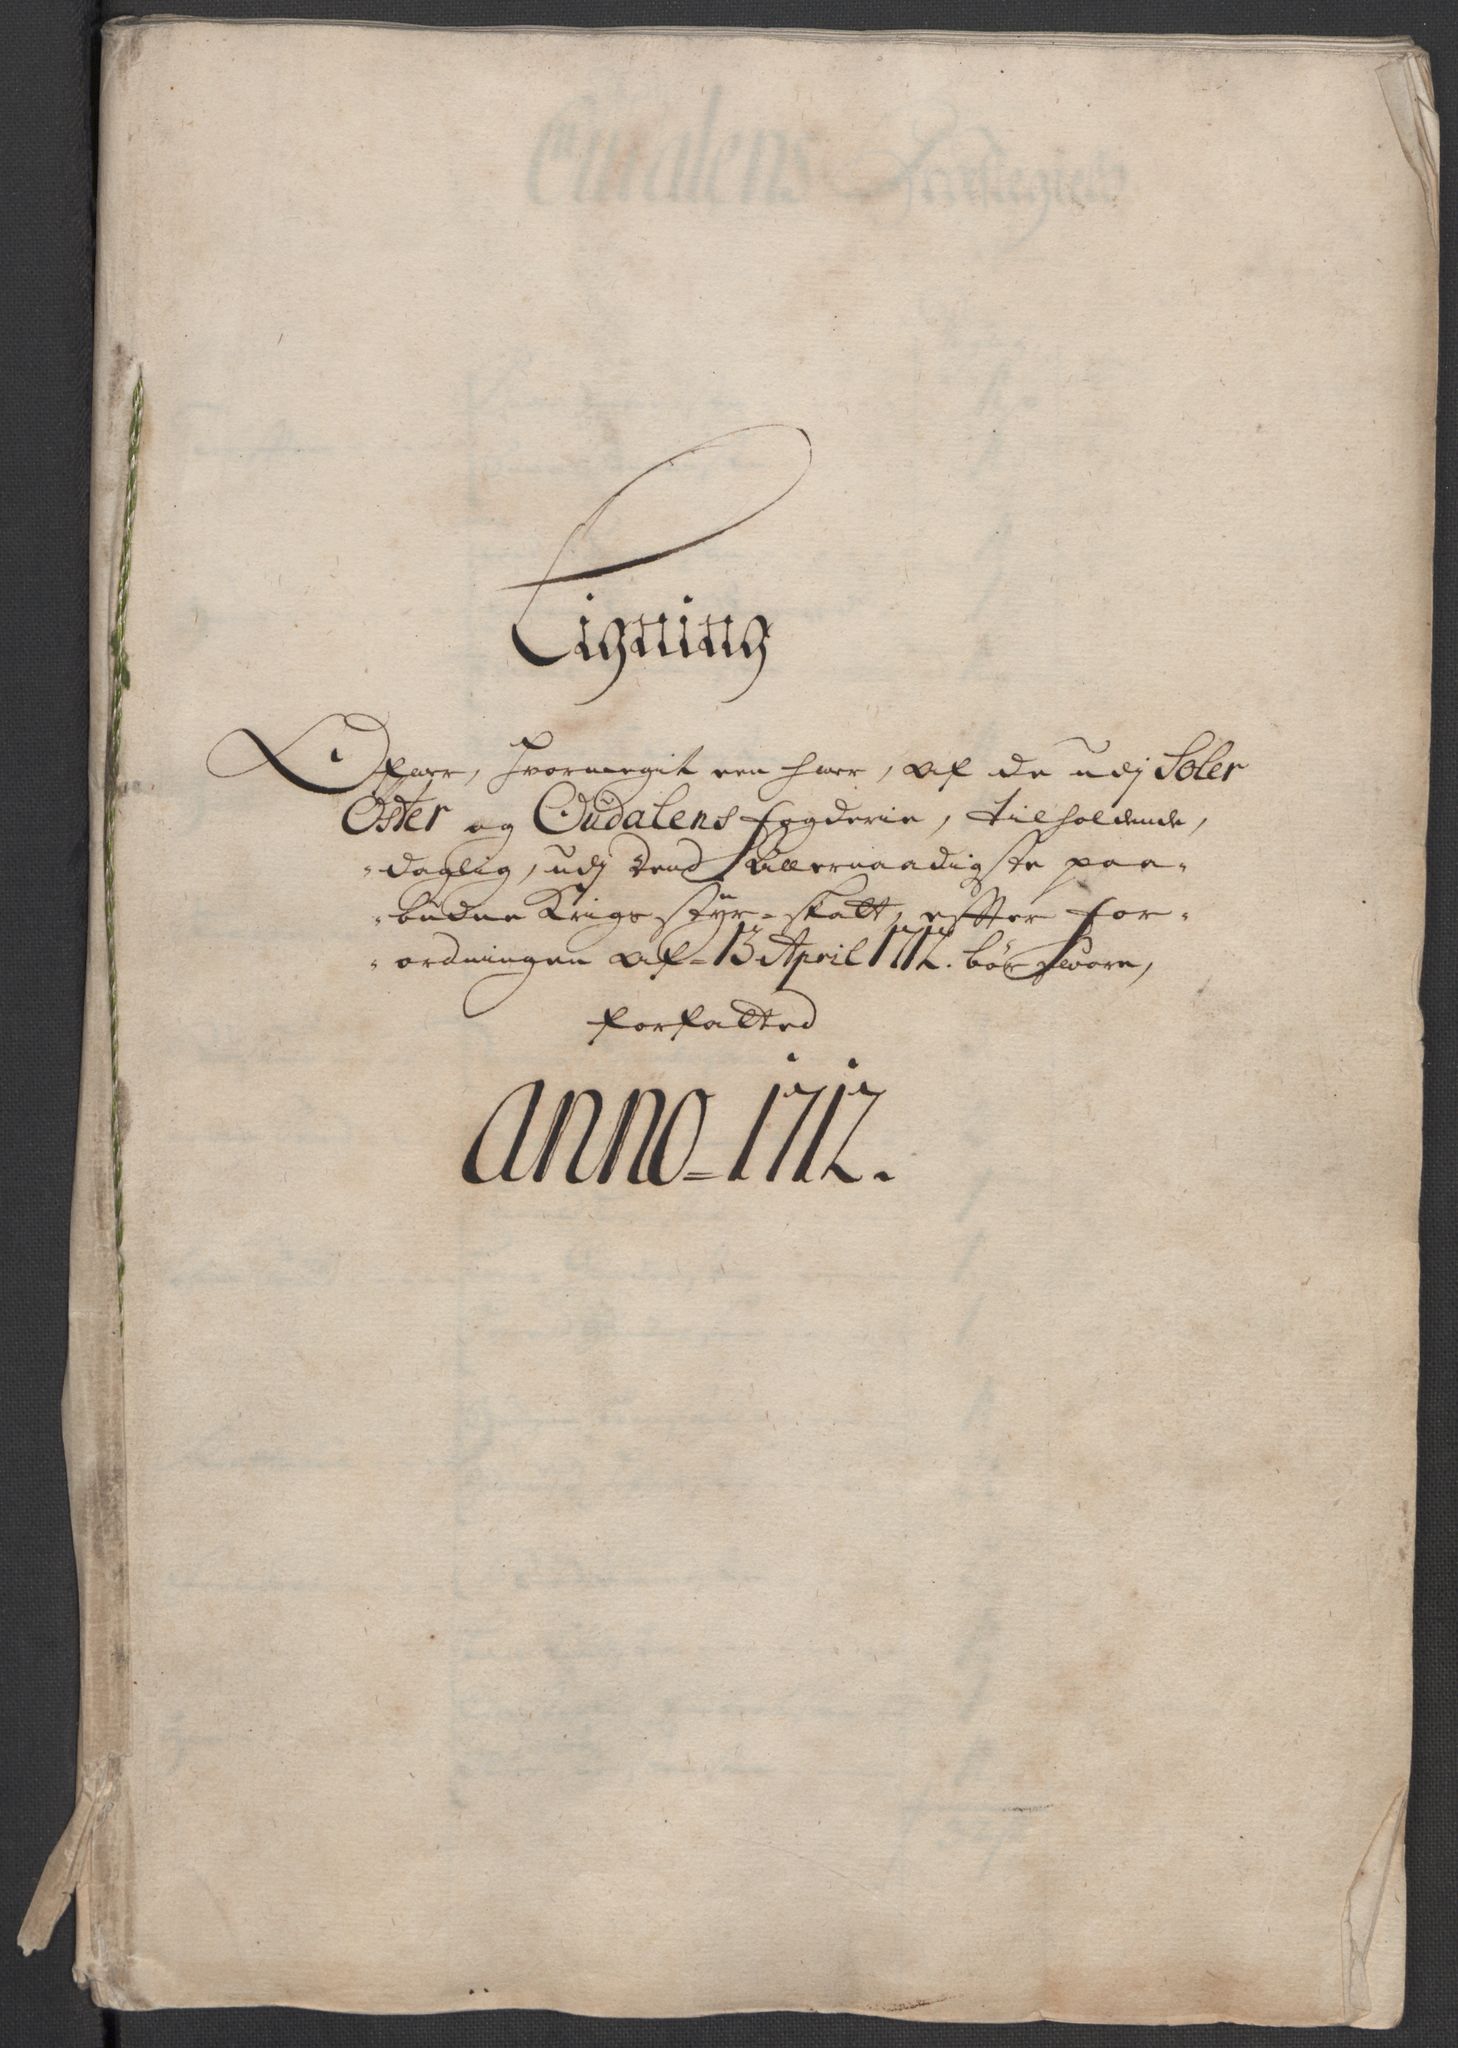 Ligning
Ofwer, hvormegit een hwer, af de udj Soler
Oster og Oudalens fogderie, tilholdende,
daglig, udj dend allernaadigste paa-
budne Krigs styr-skatt, effter for-
ordningen af 13 April 1712. bör svare,
forfatted
Anno-1712.